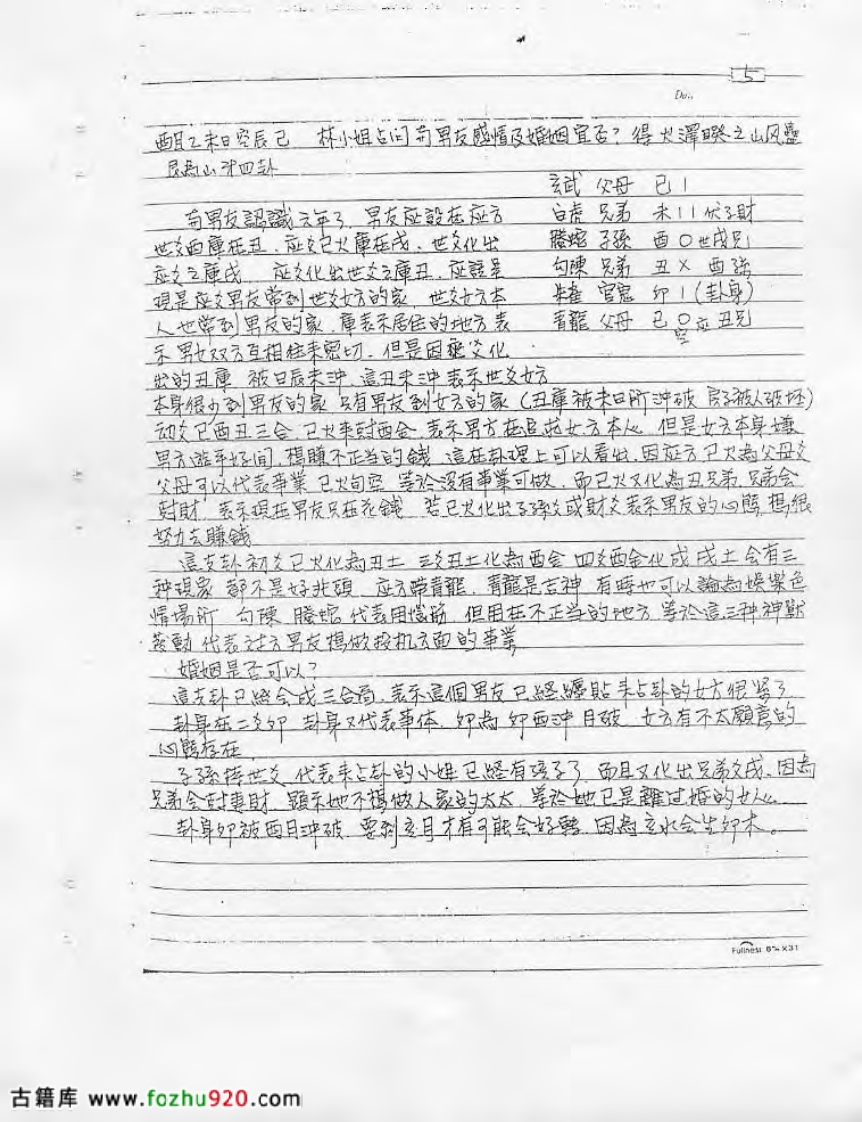 5
Da..
酉月乙未日空辰巳 林小姐占问与男友感情及婚姻宜否? 得火澤睽之山风蠱
艮為山 第四卦
玄武 父母 巳 1
与男友認識 年了, 男友应設在应方 白虎 兄弟 未 11 伏子財
世爻酉庫在丑, 应爻巳火庫在戌, 世爻化出 螣蛇 子孫 酉 〇世戌兄
应爻之庫戌 应爻化出世爻之庫丑, 应該是 勾陳 兄弟 丑 × 酉孫
現是应爻男友常到世爻女方的家, 世爻女方本 朱雀 官鬼 卯 1 (卦身)
人也常到男友的家, 庫表示居住的地方表 青龍 父母 巳 〇应 丑兄
空
示男女双方互相往來密切, 但是因應爻化
出的丑庫 被日辰未沖, 這丑未沖表示世爻女方
本身很少到男友的家 只有男友到女方的家 (丑庫被未日所沖破 房子被人破坏)
初爻巳酉丑三合, 巳火來尅酉金, 表示男方在追求女方本人, 但是女方本身嫌
男方游手好闲, 想賺不正当的錢 這在卦理上可以看出, 因应方巳火為父母爻
父母可以代表事業 巳火旬空 等於没有事業可做, 而巳火又化為丑兄弟, 兄弟会
尅財 表示現在男友只在花錢 若巳火化出子孫爻或財爻表示男友的心態, 想很
努力去賺錢
這支卦初爻巳火化為丑土 三爻丑土化為酉金 四爻酉金化成戌土 会有三
种現象 都不是好兆頭 应方帶青龍, 青龍是吉神 有時也可以論為娛樂色
情場所 勾陳 螣蛇 代表用腦筋 但用在不正当的地方 等於這三种神獸
發動 代表对方男友想做投机方面的事業
婚姻是否可以?
這支卦已經会成三合局, 表示這個男友已經纏貼來占卦的女方很紧了
卦身在二爻卯 卦身又代表事体, 卯為 卯酉沖 月破 女方有不太願意的
心態存在
子孫持世爻 代表來占卦的小姐已經有孩子了 而且又化出兄弟爻戌, 因為
兄弟会尅妻財 顕示她不想做人家的太太, 等於她已是離过婚的女人
卦身卯被酉月沖破 要到亥月才有可能会好轉 因為亥水会生卯木。
Fullness 8¾ × 31
古籍库 www.fozhu920.com